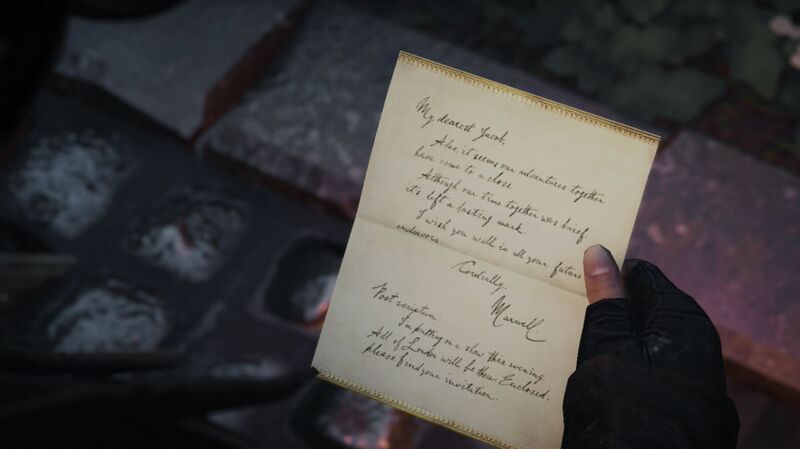 My dearest Jacob,
Alas, it seems our adventures together
have come to a close.
Although our time together was brief,
it's left a lasting mark.
I wish you well in all your future
endeavors.
Cordially,
Maxwell.
Post scriptum:
I'm putting on a show this evening.
All of London will be there. Enclosed,
please find your invitation.